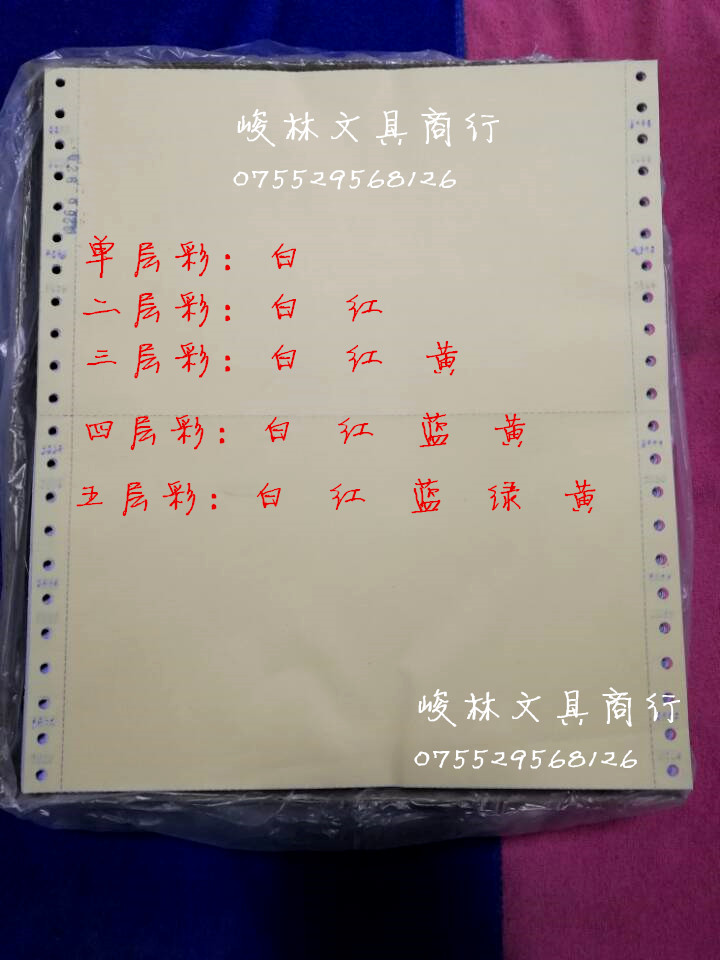 峻林文具商行
075529568126
单层彩：白
二层彩：白 红
三层彩：白 红 黄
四层彩：白 红 蓝 黄
五层彩：白 红 蓝 绿 黄
峻林文具商行
075529568126